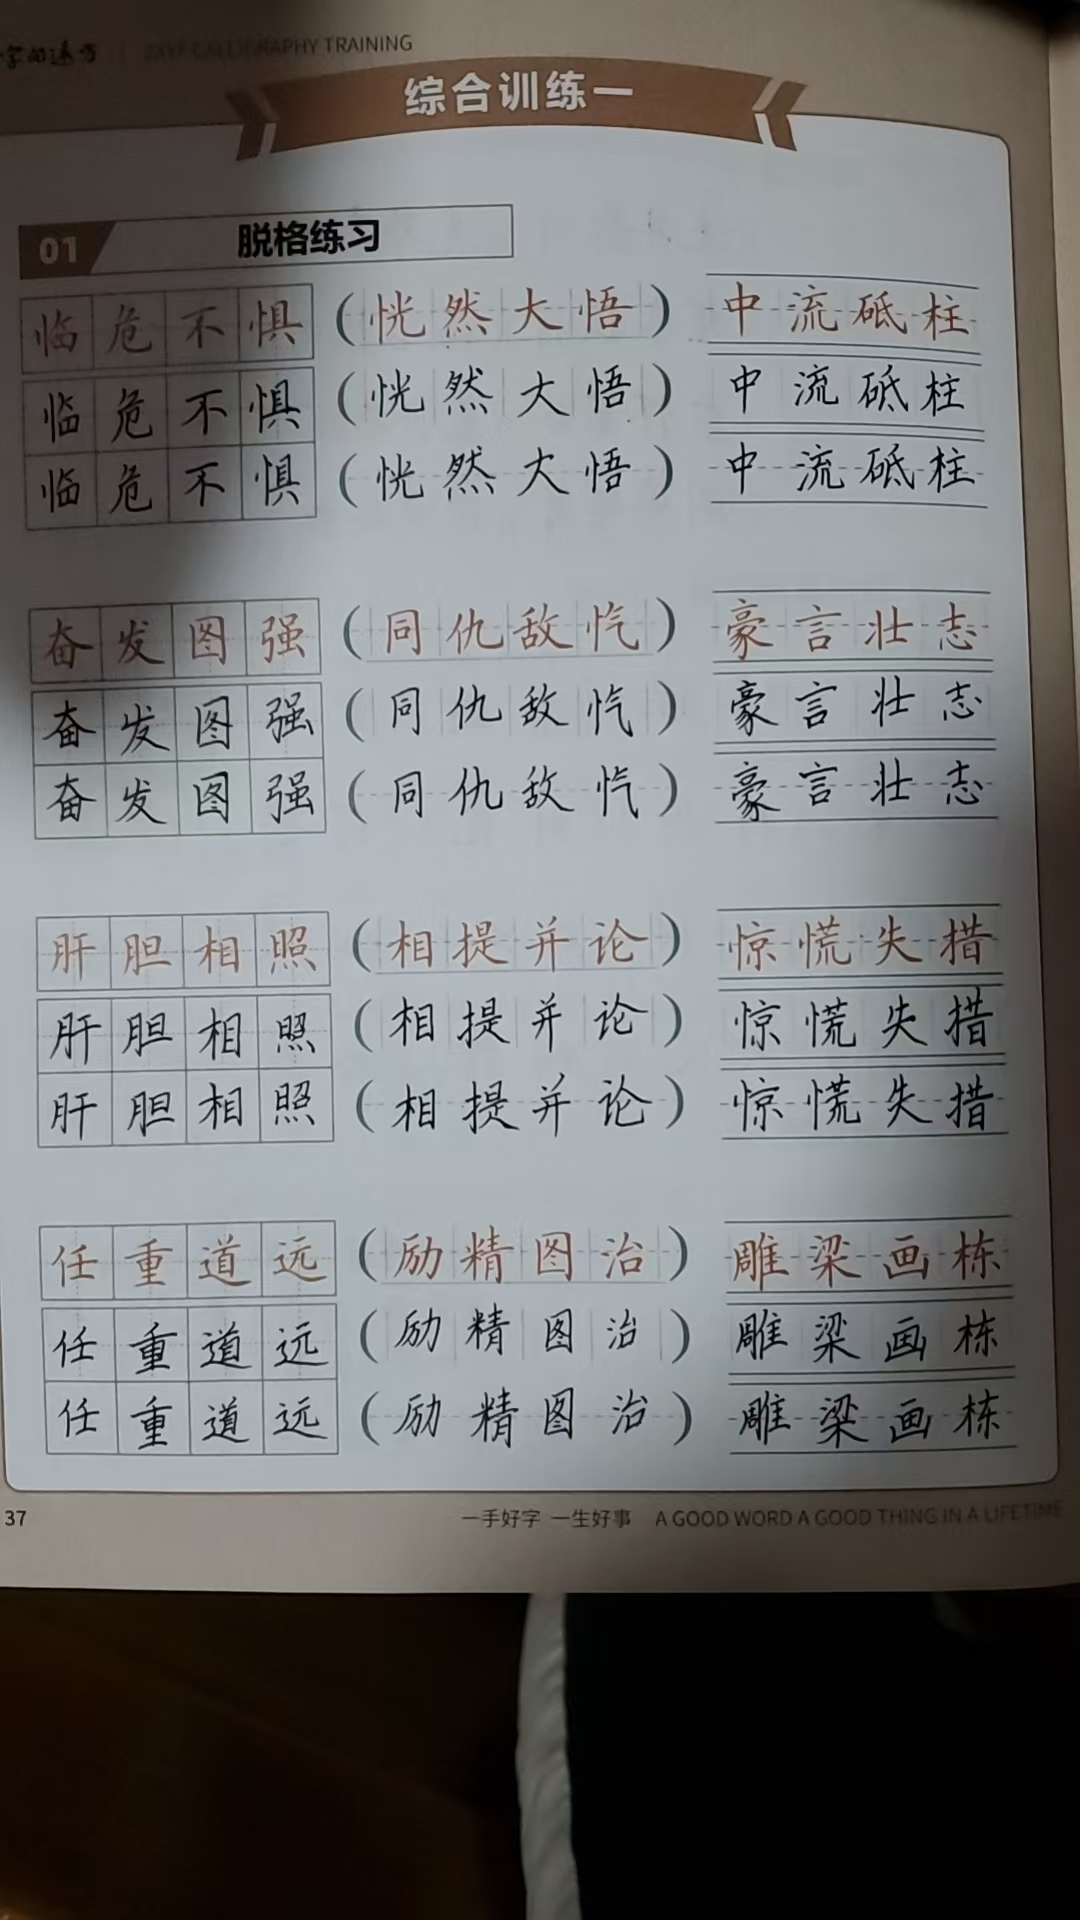 字的远方 | ZXYF CALLIGRAPHY TRAINING
综合训练一
01 脱格练习
临危不惧 (恍然大悟) 中流砥柱
临危不惧 (恍然大悟) 中流砥柱
临危不惧 (恍然大悟) 中流砥柱
奋发图强 (同仇敌忾) 豪言壮志
奋发图强 (同仇敌忾) 豪言壮志
奋发图强 (同仇敌忾) 豪言壮志
肝胆相照 (相提并论) 惊慌失措
肝胆相照 (相提并论) 惊慌失措
肝胆相照 (相提并论) 惊慌失措
任重道远 (励精图治) 雕梁画栋
任重道远 (励精图治) 雕梁画栋
任重道远 (励精图治) 雕梁画栋
37 一手好字 一生好事 A GOOD WORD A GOOD THING IN A LIFETIME